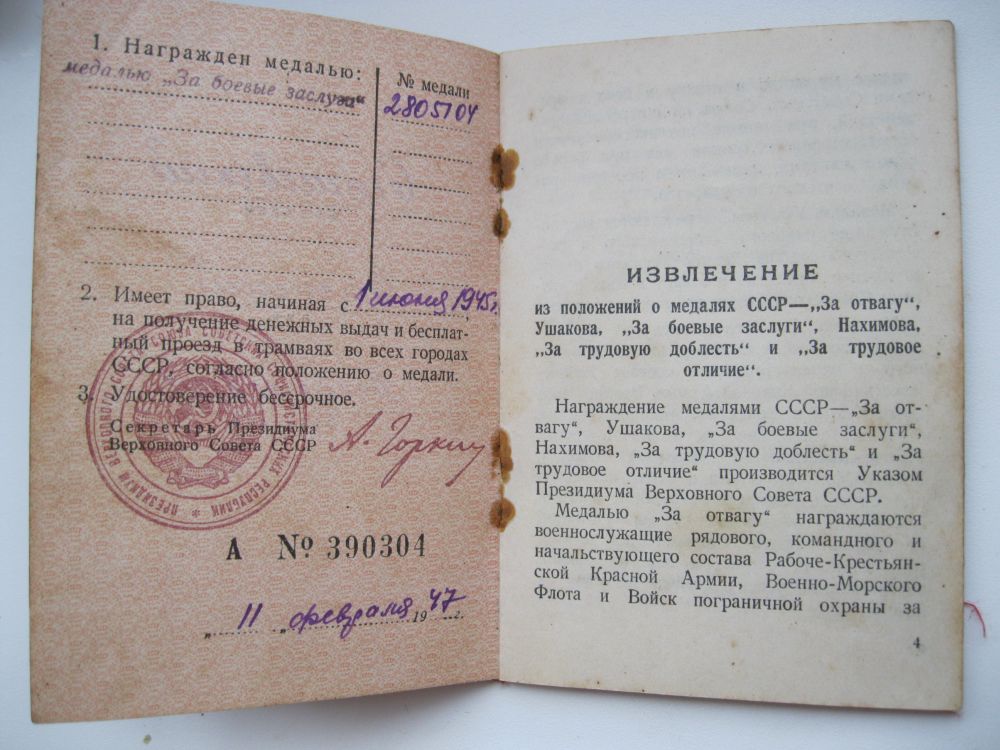 1. Награжден медалью:
№ медали
медалью „За боевые заслуги“
2805104
2. Имеет право, начиная с 1 июня 1945 г.
на получение денежных выдач и бесплат-
ный проезд в трамваях во всех городах
СССР, согласно положению о медали.
3. Удостоверение бессрочное.
Секретарь Президиума
Верховного Совета СССР
А. Горкин
ПРЕЗИДИУМ ВЕРХОВНОГО СОВЕТА СОЮЗА СОВЕТСКИХ СОЦИАЛИСТИЧЕСКИХ РЕСПУБЛИК
А № 390304
„ 11 „ февраля 19 47 г.
ИЗВЛЕЧЕНИЕ
из положений о медалях СССР—„За отвагу“,
Ушакова, „За боевые заслуги“, Нахимова,
„За трудовую доблесть“ и „За трудовое
отличие“.
Награждение медалями СССР—„За от-
вагу“, Ушакова, „За боевые заслуги“,
Нахимова, „За трудовую доблесть“ и „За
трудовое отличие“ производится Указом
Президиума Верховного Совета СССР.
Медалью „За отвагу“ награждаются
военнослужащие рядового, командного и
начальствующего состава Рабоче-Крестьян-
ской Красной Армии, Военно-Морского
Флота и Войск пограничной охраны за
4